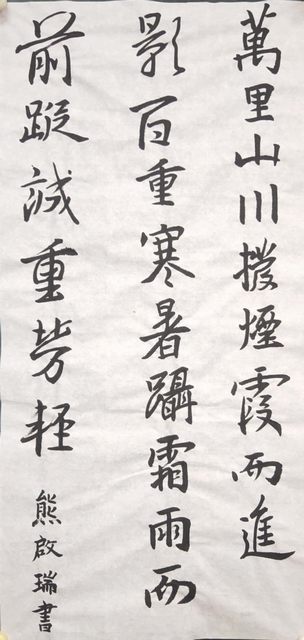 萬里山川撥煙霞而進
影百重寒暑躡霜雨而
前蹤誠重勞輕
熊啟瑞書